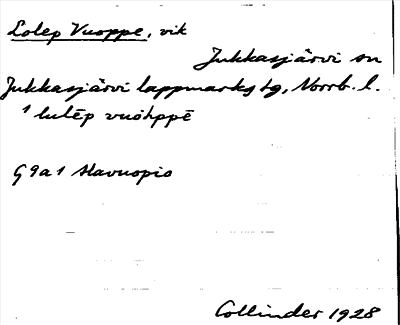 Lolep Vuoppe, vik
Jukkasjärvi sn
Jukkasjärvi lappmarks tg, Norrb. l.
¹ lulēp vuöhppē
G 9 a 1 Alavuopio
Collinder 1928